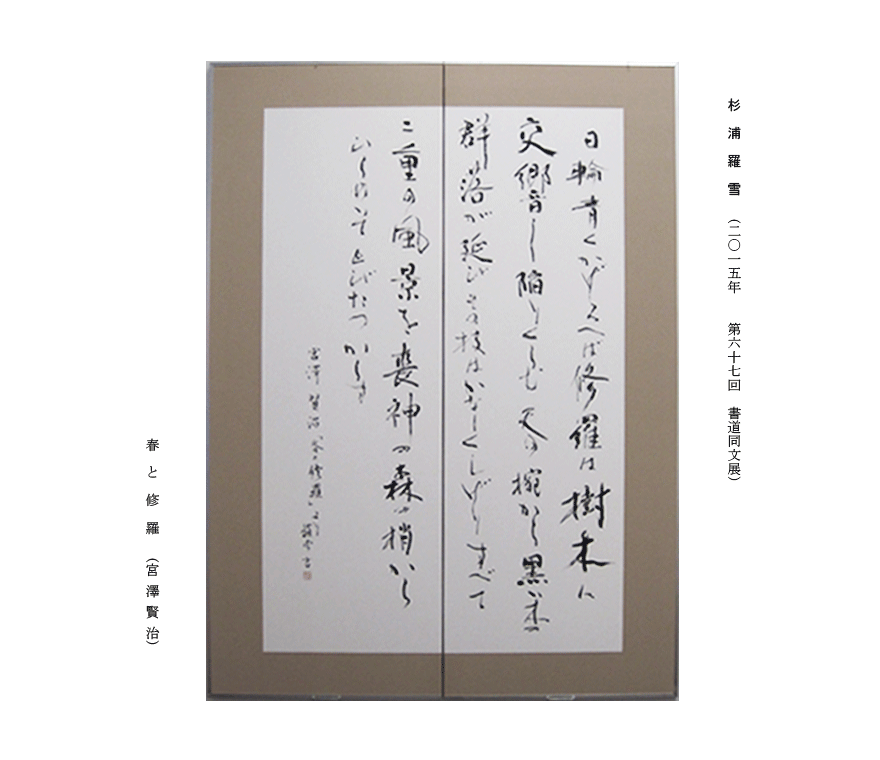 杉浦羅雪 (二〇一五年 第六十七回 書道同文展)
日輪青くかげろへば修羅は樹林に
交響し陥りくらむ天の椀から黒い木の
群落が延びその枝はかなしくしげりすべて
二重の風景を喪神の森の梢から
ひらめいてとびたつからす
宮澤賢治「春と修羅」より 羅雪書
春と修羅 (宮澤賢治)